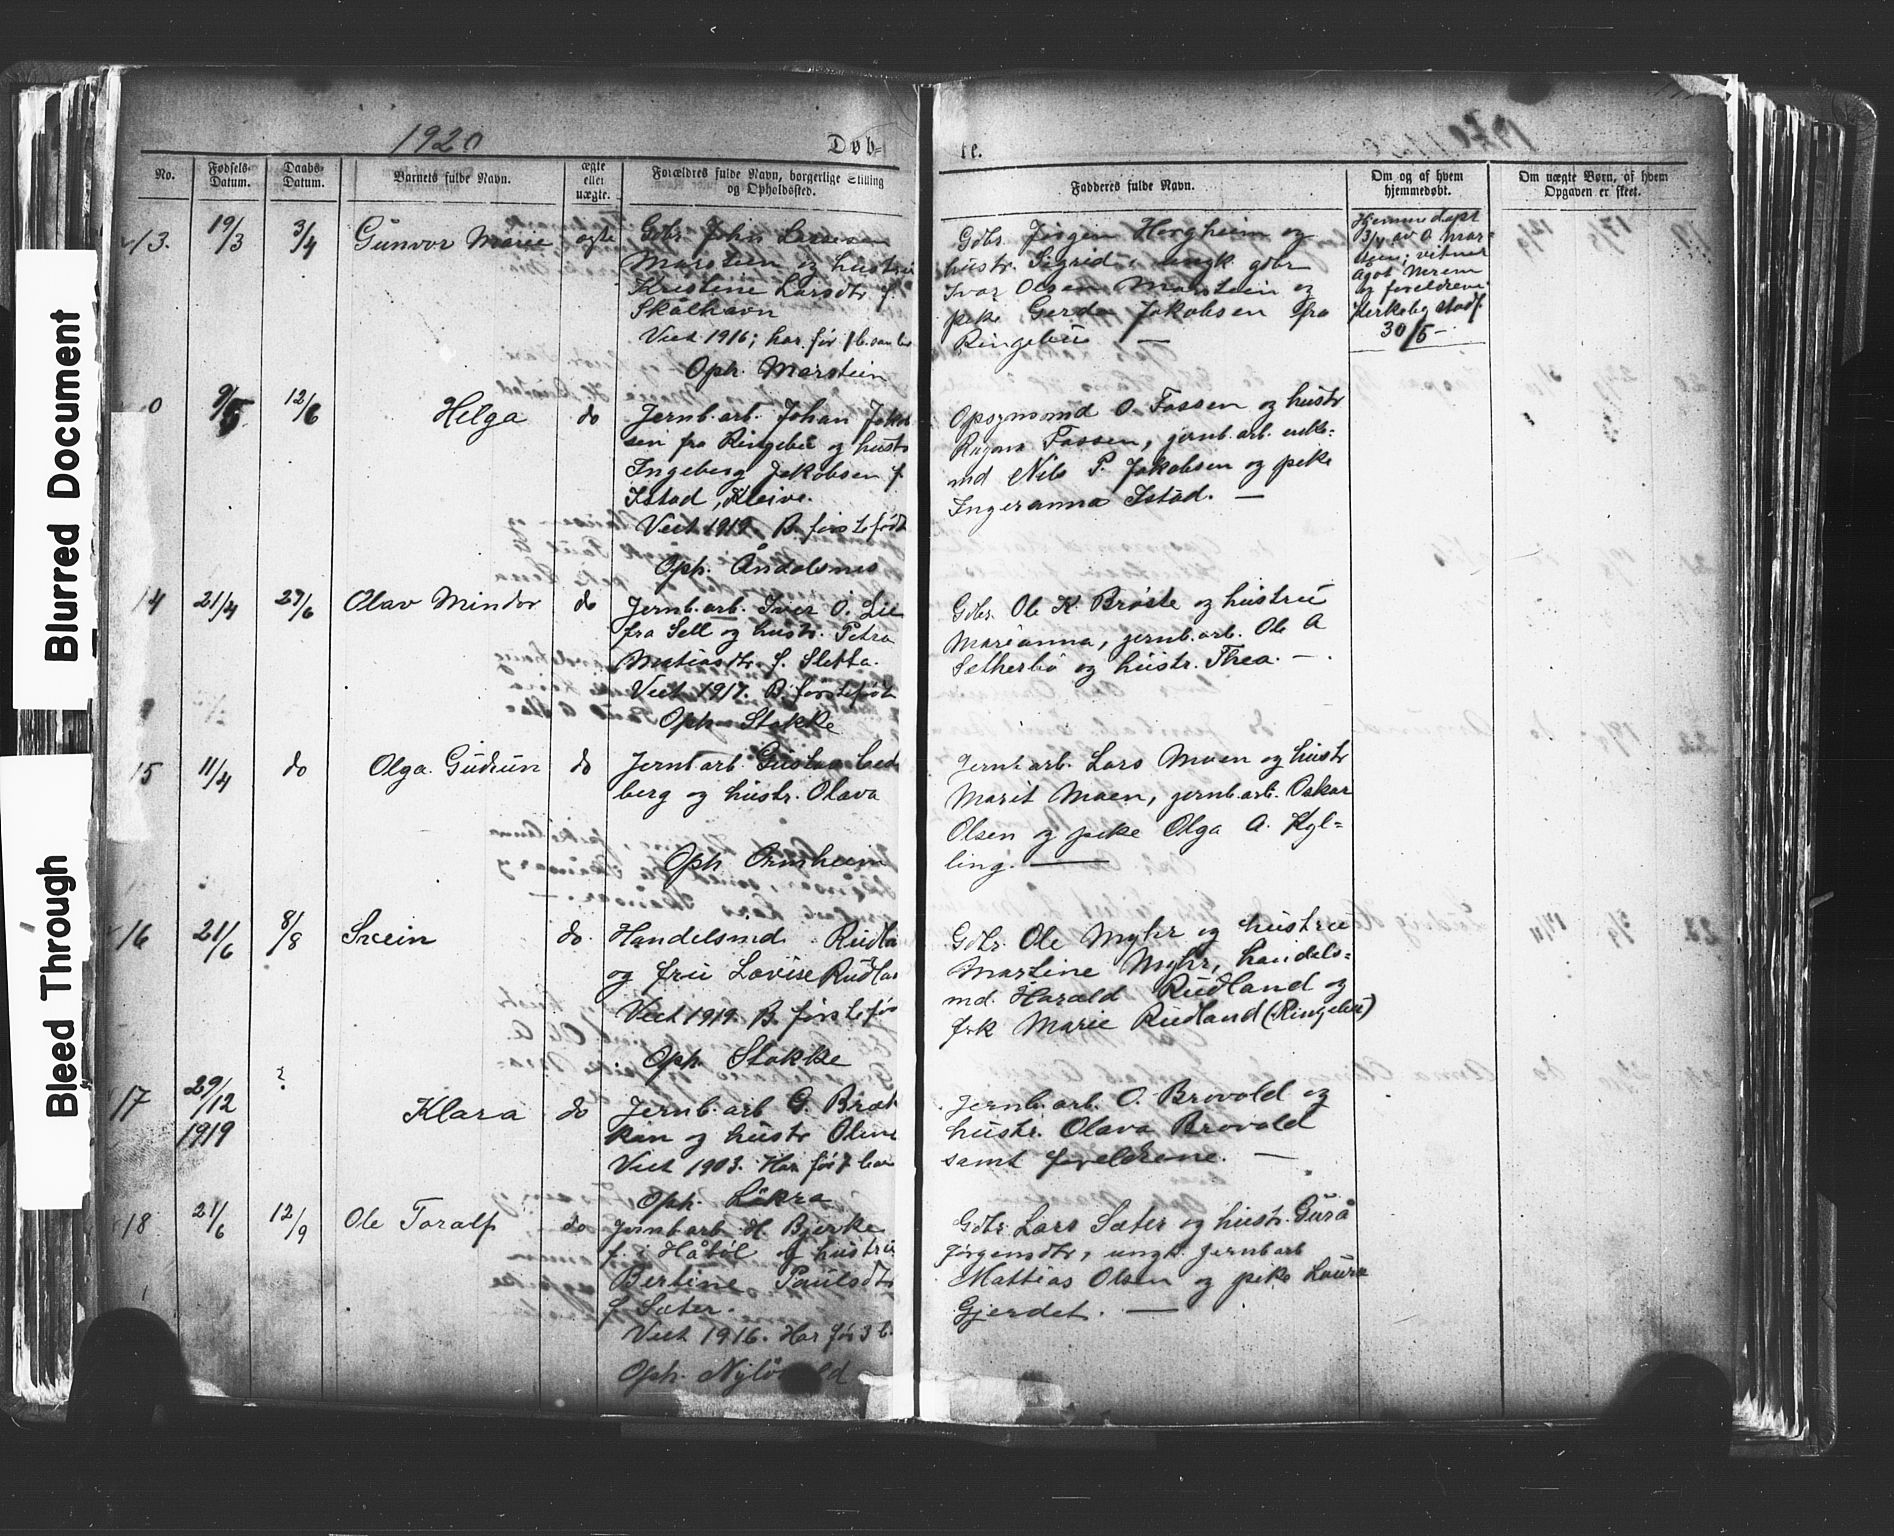 Blurred Document
Bleed Through
1920
Døb-
te.
No.
Fødsels-
Datum.
Daabs-
Datum.
Barnets fulde Navn.
ægte
eller
uægte.
Forældres fulde Navn, borgerlige Stilling
og Opholdssted.
Fadderes fulde Navn.
Om og af hvem
hjemmedøbt.
Om uægte Børn, af hvem
Opgaven er skeet.
13.
19/3
3/4
Gunvor Marie
egte
Gdbr. John Larsen
Marstein og hustru
Kristine Larsdtr f.
Skålhavn
Viet 1916; har før 1 b.
Oph. Marstein
Gdbr. Jørgen Horgheim og
hustr. Sigrid, ungk. gdbr
Ivar Olsen Marstein og
pike Gerda Jakobsen fra
Ringebu —
Hjemmedøpt
3/4 av O. Mar-
stein; vitner
og foreldrene
Kirkelig stadf
30/5 —
0
9/5
12/6
Helga
do
Jernb.arb. Johan Jakob
sen fra Ringebu og hustr
Ingeborg Jakobsen f.
Istad, Kleive.
Viet 1919. B. førstefødt
Oph. Åndalsnes
Opsynsmd O. Fossen og hustr
Ragna Fossen, jernb.arb. enke-
md Nils P. Jakobsen og pike
Ingeranna Istad. —
14
21/4
27/6
Olav Mindor
do
Jernb.arb. Iver O. Lie
fra Sell og hustr. Petra
Matiasdtr. f. Sletta.
Viet 1917. B. førstefødt
Oph. Stokke
Gdbr. Ole K. Brøste og hustru
Marianna, jernb.arb. Ole A
Sætherbø og hustr. Thea. —
15
11/4
do
Olga Gudrun
do
Jernb.arb. Gustav Ced
berg og hustr. Olava
Oph. Ormheim
Jernb.arb. Lars Moen og hustr
Marit Moen, jernb.arb. Oskar
Olsen og pike Olga A. Kyl-
ling. —
16
21/6
8/8
Svein
do
Handelsmd. Rudla
og fru Lovise Rudlan
Viet 1919. B. førstefø
Oph. Stokke
Gdbr. Ole Myhr og hustru
Martine Myhr, handels-
md. Harald Rudland og
frk Marie Rudland (Ringebu)
17
29/12
1919
?
Klara
do
Jernb.arb G. Bræk
kan og hustr Oline
Viet 1903. Har før 7 bar
Oph. Løkra
Jernb.arb. O. Brovold og
hustr. Olava Brovold
samt foreldrene. —
18
21/6
12/9
Ole Toralf
do
Jernb.arb H. Bjerke
f. i Håbøl og hustru
Bertine Paulsdtr
f. Sæter.
Viet 1916. Har før 3 b.
Oph. Nyløvold
Gdbr. Lars Sæter og hustr. Gurå
Jørgensdtr, ungk. jernb.arb
Mattias Olsen og pike Laura
Gjerdet. —